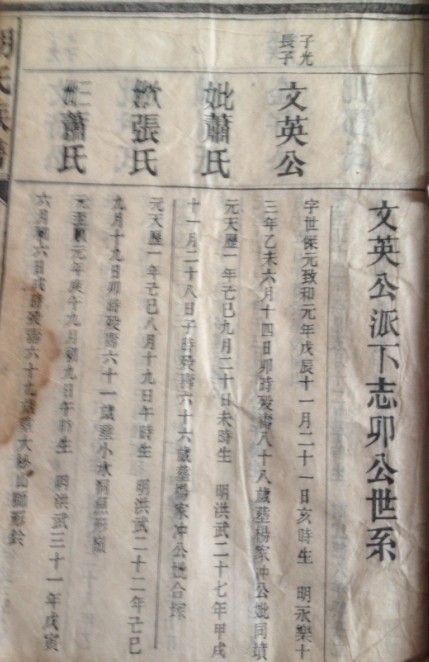 文英公派下志卯公世系
子光
長子
文英公
字世傑元致和元年戊辰十一月二十一日亥時生 明永樂十
三年乙未六月十四日卯時歿壽八十八歲墓楊家冲公妣同墳
妣蕭氏
元天歷一年己巳九月二十日未時生 明洪武二十七年甲戌
十一月二十八日子時歿壽六十六歲墓楊家冲公妣合塚
張氏
元天歷一年己巳八月十九日午時生 明洪武二十二年己巳
九月十九日卯時歿壽六十一歲葬小水洞魚形嶺
蕭氏
元至順元年庚午九月初九日午時生 明洪武三十一年戊寅
六月初六日戌時歿壽六十九歲葬大松山獅形
氏族譜